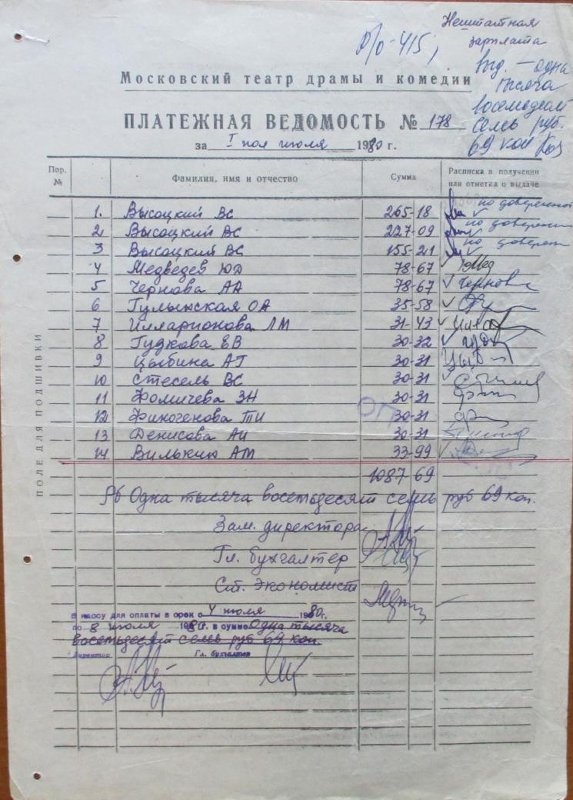 р/о-415,
Нештатная
зарплата
выд. — одна
тысяча
восемьдесят
семь руб.
69 коп
Московский театр драмы и комедии
ПЛАТЕЖНАЯ ВЕДОМОСТЬ № 178
за I пол июля 1980 г.
Пор. № Фамилия, имя и отчество Сумма Расписка в получении или отметка о выдаче
1. Высоцкий ВС 265-18 по доверенно
2. Высоцкий ВС 227-09 по доверен
3 Высоцкий ВС 155-21 по доверен
4 Медведев ЮД 78-67
5 Чернова АА 78-67 Чернова
6 Гулынская ОА 35-58
7 Илларионова ЛМ 31-43
8 Гудкова ЕВ 30-32
9 Цыбина АТ 30-31
10 Стесель ВС 30-31
11 Фомичева ЗН 30-31
12 Финогенова ТИ 30-31
13 Денисова АИ 30-31
14 Вилькин АМ 33-99
1087-69
Одна тысяча восемьдесят семь руб 69 коп.
Зам. директора
Гл. бухгалтер
Ст. экономист
В кассу для оплаты в срок с 4 июля 1980г.
по 8 июля 1980г. в сумме Одна тысяча
восемьдесят семь руб 69 коп
Директор Гл. бухгалтер
ПОЛЕ ДЛЯ ПОДШИВКИ